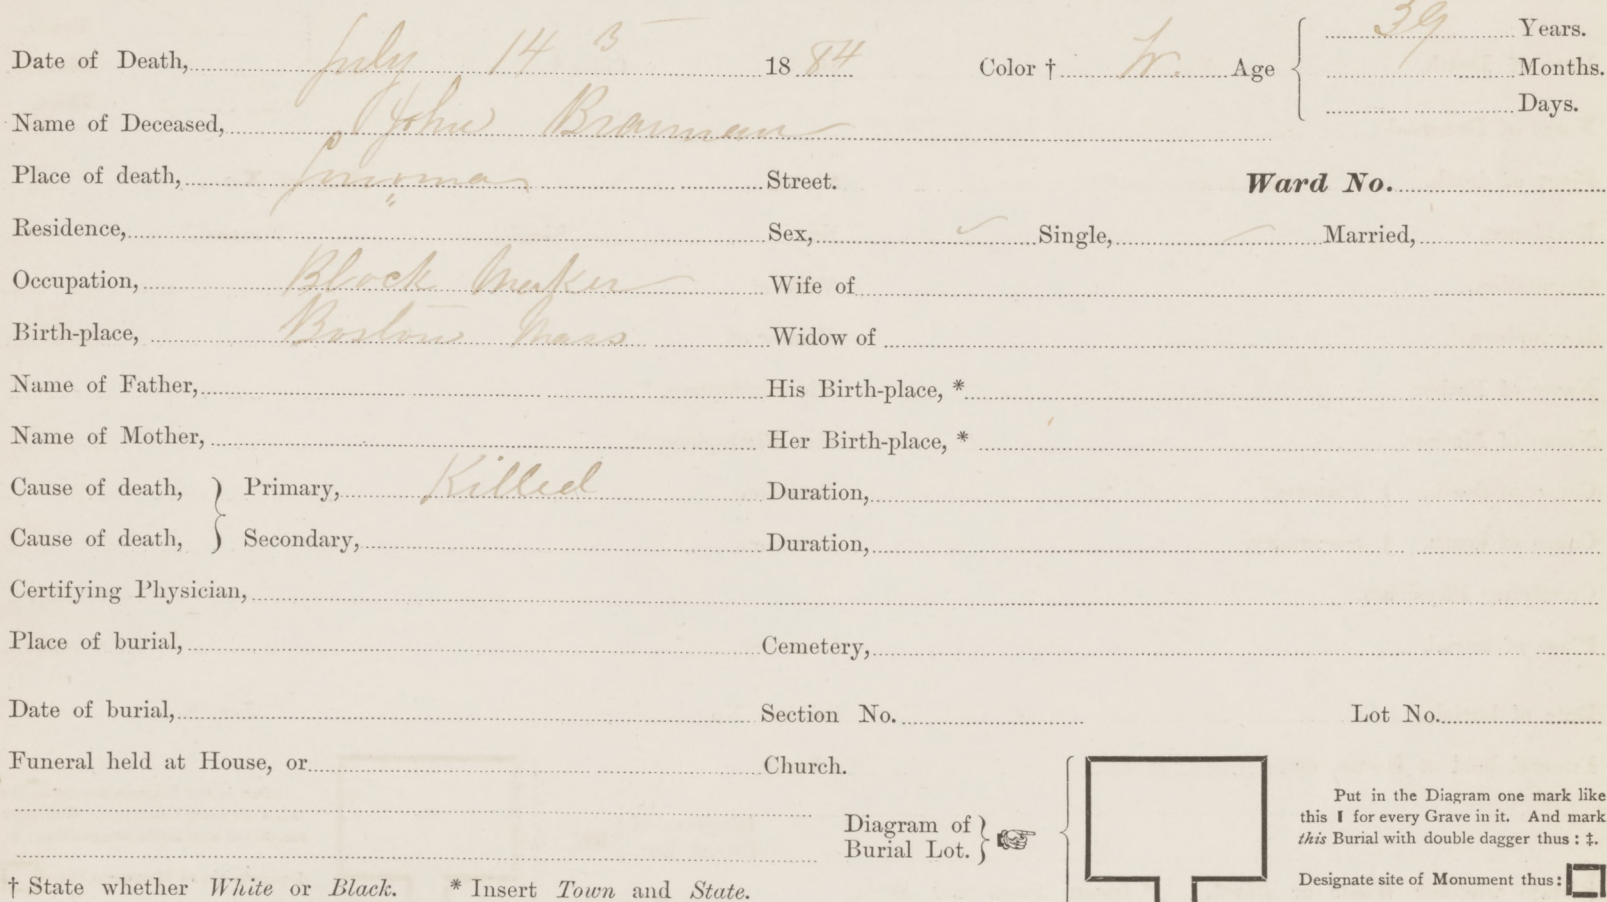 39 Years.
Date of Death, July 14 1884 Color † W. Age Months.
Days.
Name of Deceased, John
Place of death, Street. Ward No.
Residence, " Sex, Single, Married,
Occupation, Block Maker Wife of
Birth-place, Boston Mass Widow of
Name of Father, His Birth-place, *
Name of Mother, Her Birth-place, *
Cause of death, } Primary, Killed Duration,
Cause of death, } Secondary, Duration,
Certifying Physician,
Place of burial, Cemetery,
Date of burial, Section No. Lot No.
Funeral held at House, or Church.
Put in the Diagram one mark like
this I for every Grave in it. And mark
this Burial with double dagger thus : ‡.
Diagram of
Burial Lot. } ☞
Designate site of Monument thus:
† State whether White or Black. * Insert Town and State.